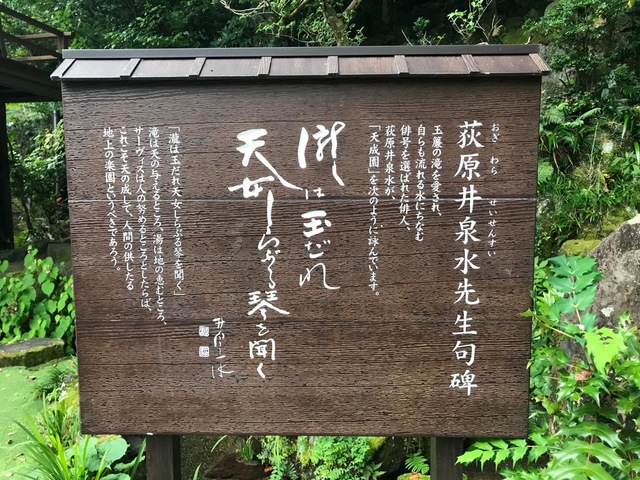 荻原井泉水先生句碑
おぎ わら せいせんすい
玉簾の滝を愛され、
自らも流れる水にちなむ
俳号を選ばれた俳人、
荻原井泉水が、
「天成園」を次のように詠んでいます。
瀧は玉だれ
天女しらぶる琴を聞く
井泉水
「瀧は玉だれ天女しらぶる琴を聞く」
滝は天の与えるところ、湯は地の恵むところ、
サーヴィスは人の努めるところとしたらば、
これこそ天の成して、人間の供したる
地上の楽園というべきであろう。